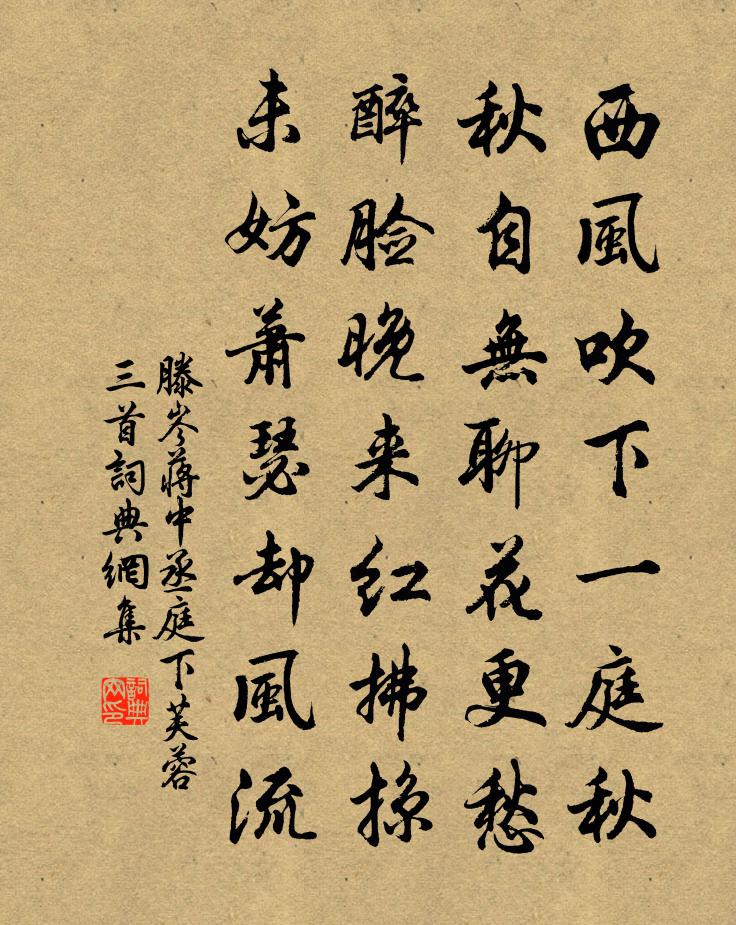 西風吹下一庭秋
秋自無聊花更愁
醉脸晚来红拂掠
未妨蕭瑟却風流
滕岑蔣中丞庭下芙蓉
三首詞典網集
詞典
网印